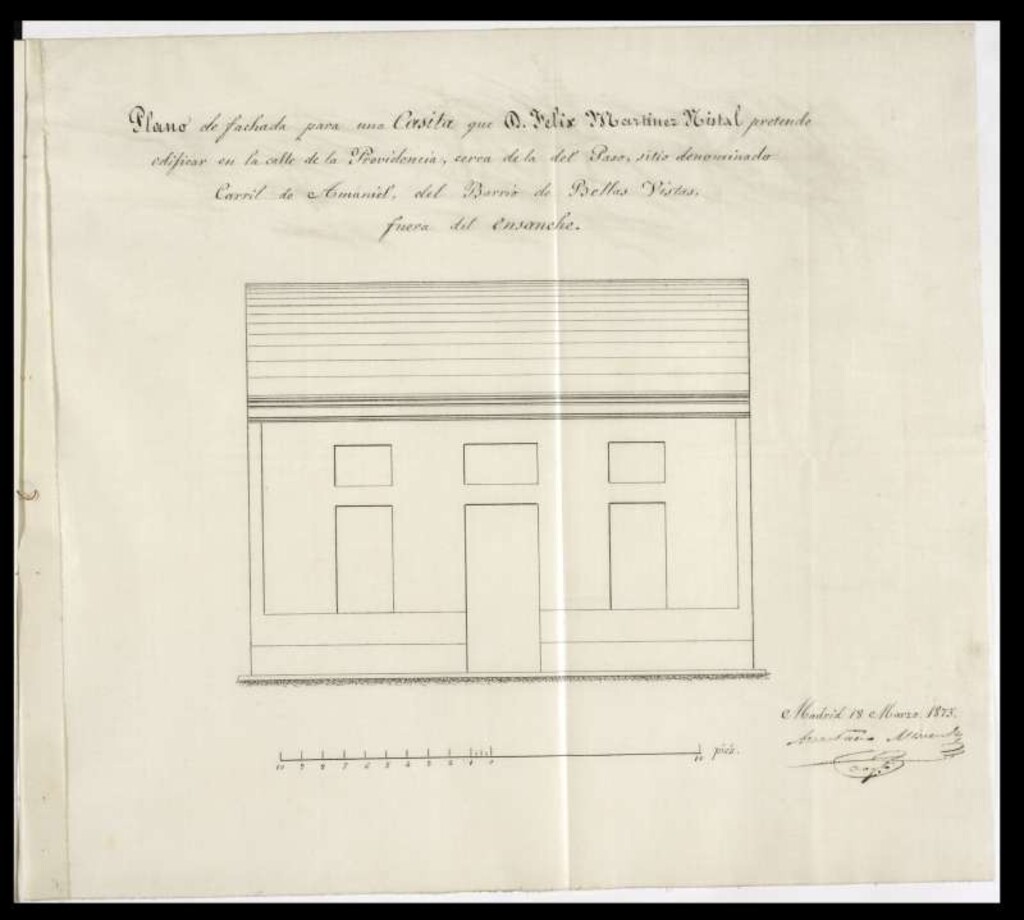 Plano de fachada para una Casita que D. Felix Martinez Nistal pretende
edificar en la calle de la Providencia, cerca de la del Paso, sitio denominado
Carril de Amaniel, del Barrio de Bellas Vistas,
fuera del ensanche.
10 9 8 7 6 5 4 3 2 1 0 10 piés.
Madrid 18 Marzo 1875.